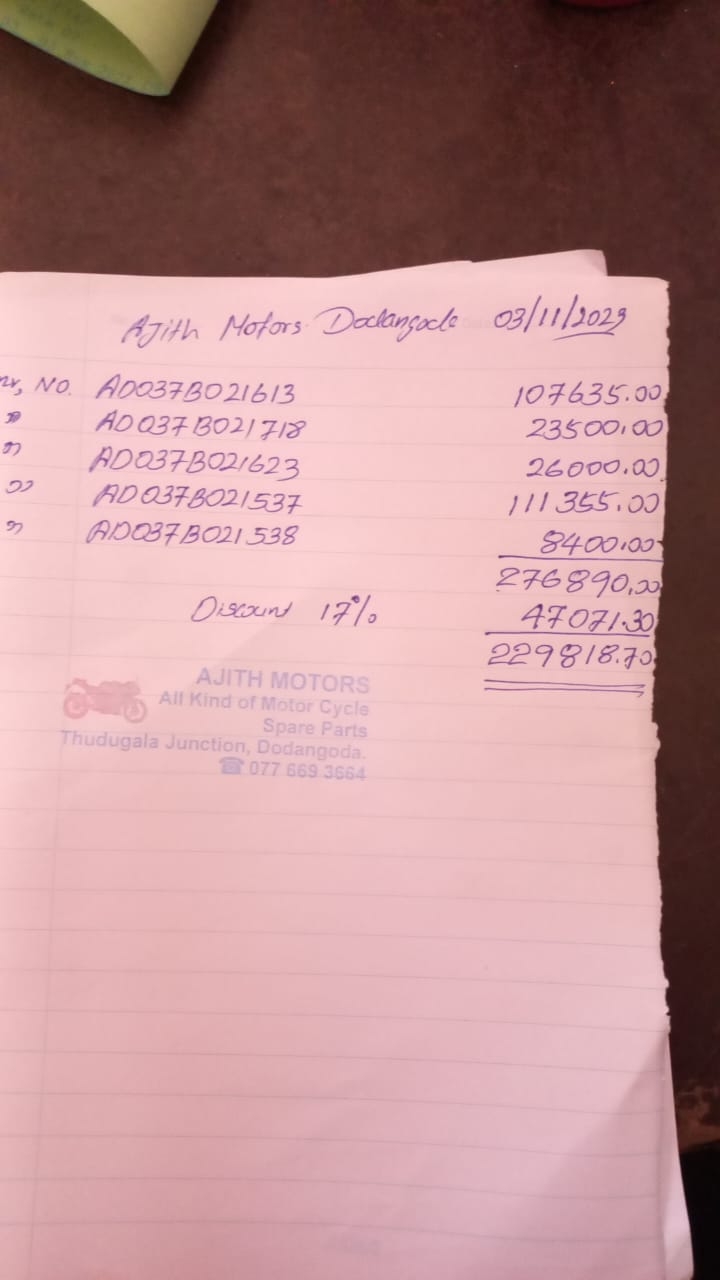 Ajith Motors Dodangoda 03/11/2023
Inv, No. AD037B021613 107635.00
" AD037B021718 23500.00
" AD037B021623 26000.00
" AD037B021537 111355.00
" AD037B021538 8400.00
276890.00
Discount 17% 47071.30
229818.70
AJITH MOTORS
All Kind of Motor Cycle
Spare Parts
Thudugala Junction, Dodangoda.
☎ 077 669 3664